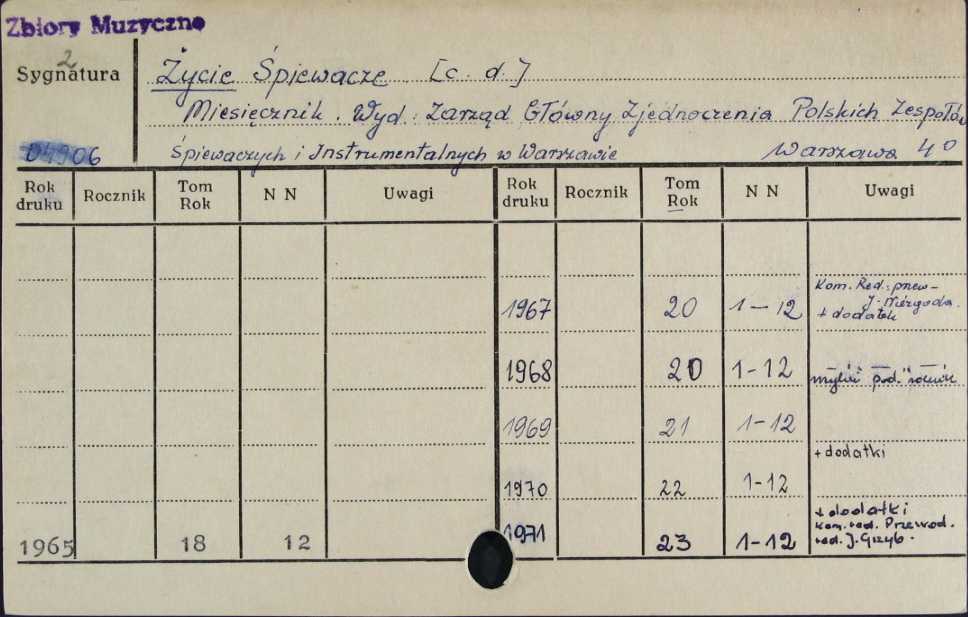 Zbiory Muzyczne
2
Sygnatura
Życie Śpiewacze [c. d.]
Miesięcznik. Wyd. Zarząd Główny Zjednoczenia Polskich Zespołów
04906 Śpiewaczych i Instrumentalnych w Warszawie Warszawa 4o
Rok druku Rocznik Tom Rok N N Uwagi Rok druku Rocznik Tom Rok N N Uwagi
1967 20 1-12 Kom. Red.: przew-
J. Niezgoda.
+ dodatek
1968 20 1-12 pod.
1969 21 1-12
1970 22 1-12 + dodatki
1965 18 12 1971 23 1-12 + dodatki
kom. red. Przewod.
red. J. Grzyb.